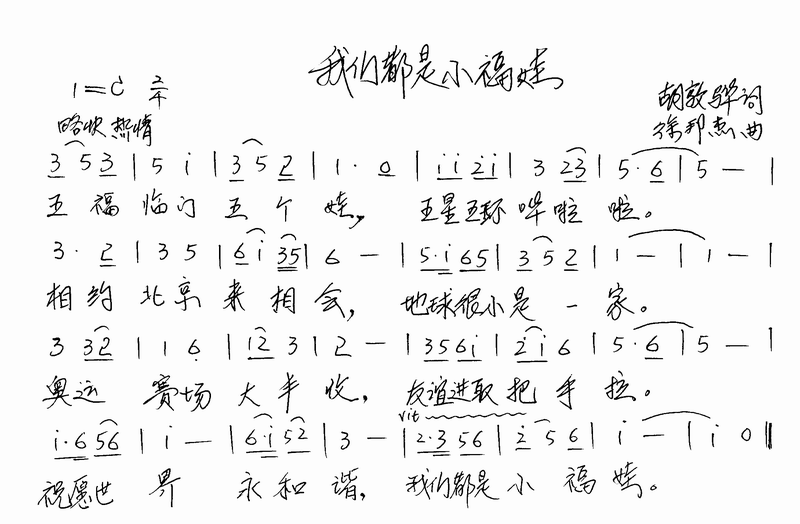 我们都是小福娃
1=C 2/4
胡敦骅词
略快 热情
徐邦杰曲
3 5 3 | 5 i | 3 5 2 | 1· 0 | i i 2 i | 3 2 3 | 5· 6 | 5 — |
五福临门五个娃，五星五环哗啦啦。
3· 2 | 3 5 | 6 i 3 5 | 6 — | 5· i 6 5 | 3 5 2 | 1 — | 1 — |
相约北京来相会，地球很小是一家。
3 3 2 | 1 1 6 | 1 2 3 | 2 — | 3 5 6 i | 2 i 6 | 5· 6 | 5 — |
奥运赛场大丰收，友谊进取把手拉。
vit
i· 6 5 6 | i — | 6· i 5 2 | 3 — | 2· 3 5 6 | 2 5 6 | i — | i 0 ‖
祝愿世界永和谐，我们都是小福娃。